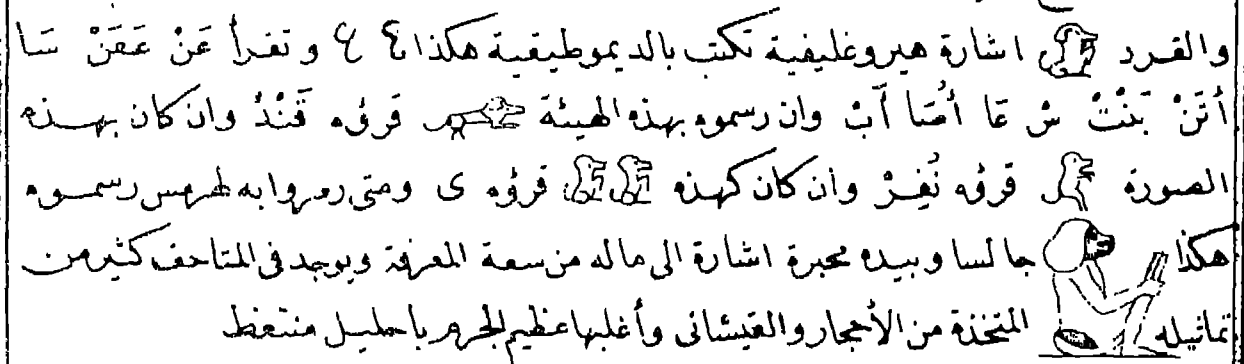 والقرد اشارة هيروغليفية تكتب بالديموطيقية هكذا و تقرأ عَنْ عَفَنْ سَا
أَتَنْ بَنْتْ شْ عَا أُصَا آبْ وان رسموه بهذه الهيئة قرؤه قَنْدْ وان كان بهذه
الصورة قرؤه نُفِرْ وان كان كهذه قرؤه ى ومتى رمزوا به لهرمس رسموه
هكذا جالسا وبيده محبرة اشارة الى ماله من سعة المعرفة ويوجد فى المتاحف كثير من
تماثيله المتخذة من الأحجار والقيشانى وأغلبها عظيم الجرم باحليل منتعظ